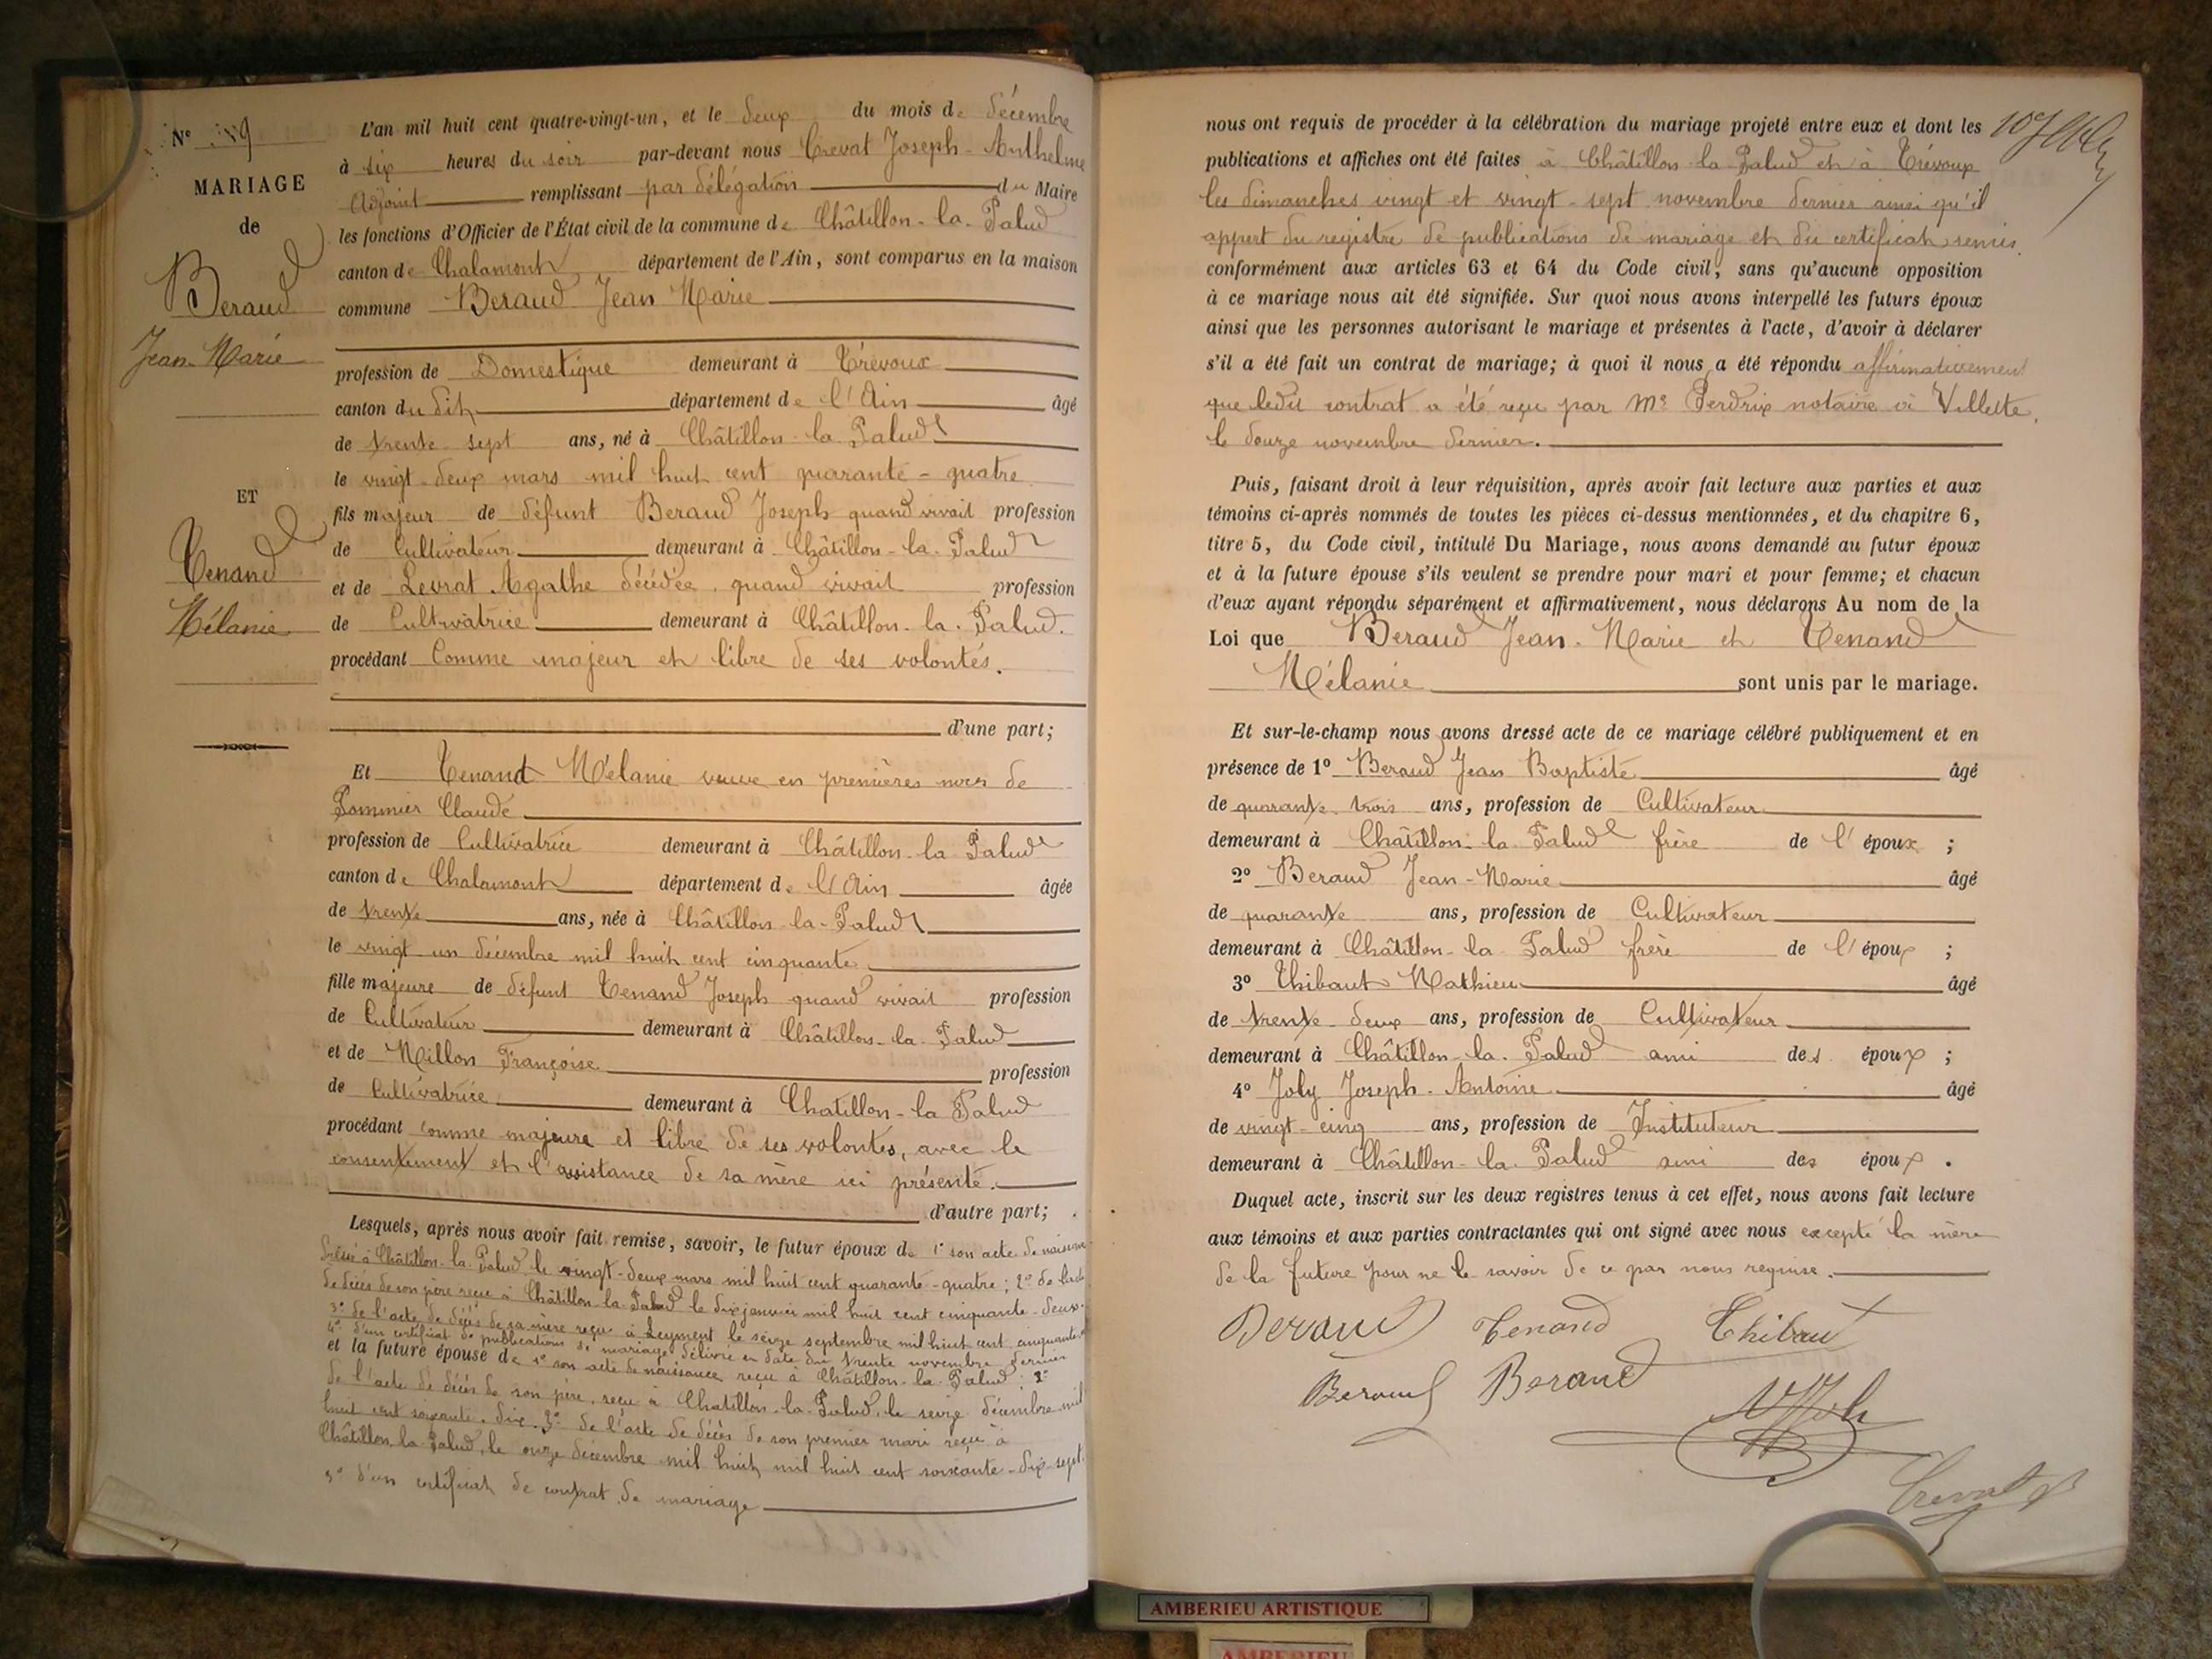 N° 9
MARIAGE
de
Beraud
Jean-Marie
ET
Tenand
Mélanie
L'an mil huit cent quatre-vingt-un, et le deux du mois de décembre
à six heures du soir par-devant nous Crevat Joseph-Anthelme
Adjoint remplissant par délégation du Maire
les fonctions d'Officier de l'État civil de la commune de Châtillon-la-Palud
canton de Chalamont département de l'Ain, sont comparus en la maison
commune Beraud Jean Marie
profession de Domestique demeurant à Trévoux
canton du dit département de l'Ain âgé
de trente-sept ans, né à Châtillon-la-Palud
le vingt-deux mars mil huit cent quarante-quatre
fils majeur de défunt Beraud Joseph quand vivait profession
de Cultivateur demeurant à Châtillon-la-Palud
et de Levrat Agathe décédée, quand vivait profession
de Cultivatrice demeurant à Châtillon-la-Palud.
procédant Comme majeur et libre de ses volontés.
d'une part;
Et Tenand Mélanie veuve en premières noces de
Pommier Claude
profession de Cultivatrice demeurant à Châtillon-la-Palud
canton de Chalamont département de l'Ain âgée
de trente ans, née à Châtillon-la-Palud
le vingt-un décembre mil huit cent cinquante
fille majeure de défunt Tenand Joseph quand vivait profession
de Cultivateur demeurant à Châtillon-la-Palud
et de Millon Françoise profession
de Cultivatrice demeurant à Chatillon-la-Palud
procédant comme majeure et libre de ses volontés, avec le
consentement et l'assistance de sa mère ici présente.
d'autre part;
Lesquels, après nous avoir fait remise, savoir, le futur époux de 1° son acte de naissance
dressé à Châtillon-la-Palud le vingt-deux mars mil huit cent quarante-quatre; 2° de l'acte
de décès de son père reçu à Châtillon-la-Palud le dix janvier mil huit cent cinquante-deux.
3° de l'acte de décès de sa mère reçu à Leyment le seize septembre mil huit cent cinquante
4° d'un certificat de publications de mariage délivré en date du trente novembre dernier
et la future épouse de 1° son acte de naissance reçu à Châtillon-la-Palud; 2°
de l'acte de décès de son père, reçu à Chatillon-la-Palud, le seize décembre mil
huit cent soixante-dix. 3° de l'acte de décès de son premier mari reçu à
Châtillon-la-Palud, le onze décembre mil huit mil huit cent soixante-dix-sept.
d'un certificat de contrat de mariage
nous ont requis de procéder à la célébration du mariage projeté entre eux et dont les
publications et affiches ont été faites à Châtillon-la-Palud et à Trévoux
les dimanches vingt et vingt-sept novembre dernier ainsi qu'il
appert du registre de publications de mariage et du certificat remis.
conformément aux articles 63 et 64 du Code civil, sans qu'aucune opposition
à ce mariage nous ait été signifiée. Sur quoi nous avons interpellé les futurs époux
ainsi que les personnes autorisant le mariage et présentes à l'acte, d'avoir à déclarer
s'il a été fait un contrat de mariage; à quoi il nous a été répondu affirmativement
que ledit contrat a été reçu par Me Perdrix notaire à Villette,
le douze novembre dernier.
Puis, faisant droit à leur réquisition, après avoir fait lecture aux parties et aux
témoins ci-après nommés de toutes les pièces ci-dessus mentionnées, et du chapitre 6,
titre 5, du Code civil, intitulé Du Mariage, nous avons demandé au futur époux
et à la future épouse s'ils veulent se prendre pour mari et pour femme; et chacun
d'eux ayant répondu séparément et affirmativement, nous déclarons Au nom de la
Loi que Beraud Jean-Marie et Tenand
Mélanie sont unis par le mariage.
Et sur-le-champ nous avons dressé acte de ce mariage célébré publiquement et en
présence de 1° Beraud Jean Baptiste âgé
de quarante-trois ans, profession de Cultivateur
demeurant à Châtillon-la-Palud frère de l'époux ;
2° Beraud Jean-Marie âgé
de quarante ans, profession de Cultivateur
demeurant à Châtillon-la-Palud frère de l'époux ;
3° Thibaut Mathieu âgé
de trente-deux ans, profession de Cultivateur
demeurant à Châtillon-la-Palud ami des époux ;
4° Joly Joseph-Antoine âgé
de vingt-cinq ans, profession de Instituteur
demeurant à Châtillon-la-Palud ami des époux .
Duquel acte, inscrit sur les deux registres tenus à cet effet, nous avons fait lecture
aux témoins et aux parties contractantes qui ont signé avec nous excepté la mère
de la future pour ne le savoir de ce par nous requise.
Beraud Tenand Thibaut
Beraud Beraud
Joly
Crevat
AMBERIEU ARTISTIQUE
AMBERIEU